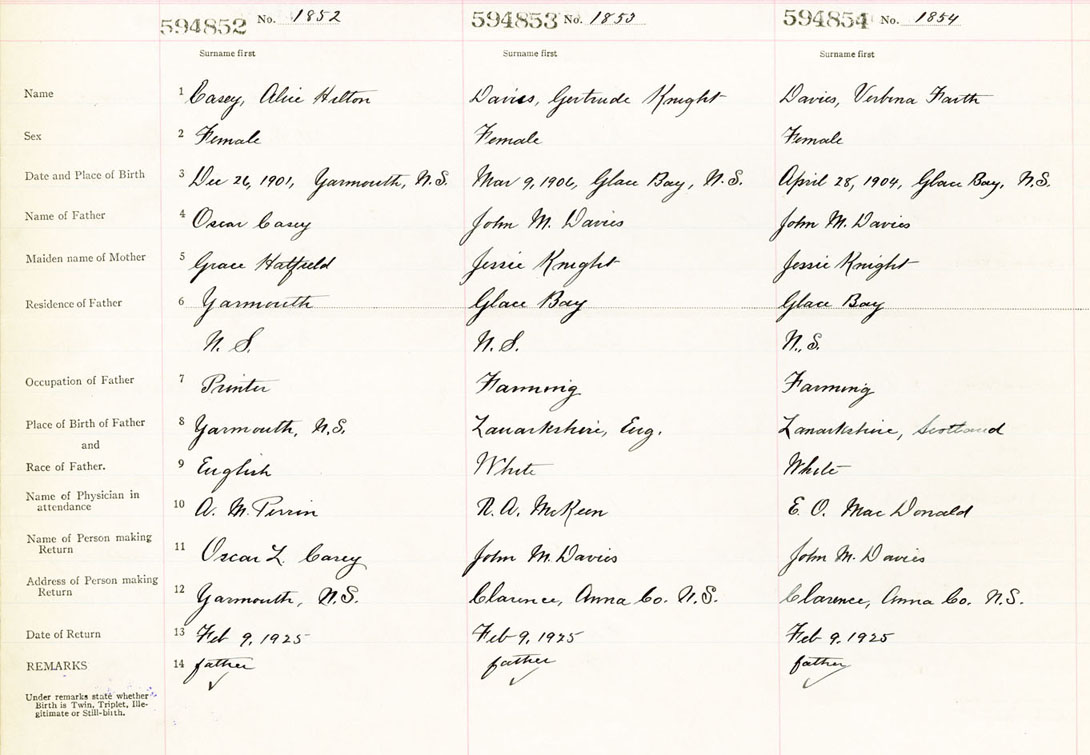 594852 No. 1852 594853 No. 1853 594854 No. 1854
Surname first Surname first Surname first
Name 1 Casey, Alice Hilton Davies, Gertrude Knight Davies, Verbena Faith
Sex 2 Female Female Female
Date and Place of Birth 3 Dec 26, 1901, Yarmouth, N.S. Mar 9, 1906, Glace Bay, N.S. April 28, 1904, Glace Bay, N.S.
Name of Father 4 Oscar Casey John M. Davies John M. Davies
Maiden name of Mother 5 Grace Hatfield Jessie Knight Jessie Knight
Residence of Father 6 Yarmouth Glace Bay Glace Bay
N. S. N. S. N. S.
Occupation of Father 7 Printer Farming Farming
Place of Birth of Father 8 Yarmouth, N.S. Lanarkshire, Eng. Lanarkshire, Scotland
and
Race of Father. 9 English White White
Name of Physician in 10 A. M. Perrin R. A. McKeen E. O. MacDonald
attendance
Name of Person making 11 Oscar L. Casey John M. Davies John M. Davies
Return
Address of Person making 12 Yarmouth, N.S. Clarence, Anna Co. N.S. Clarence, Anna Co. N.S.
Return
Date of Return 13 Feb 9, 1925 Feb 9, 1925 Feb 9, 1925
REMARKS 14 father father father
Under remarks state whether
Birth is Twin, Triplet, Ille-
gitimate or Still-birth.